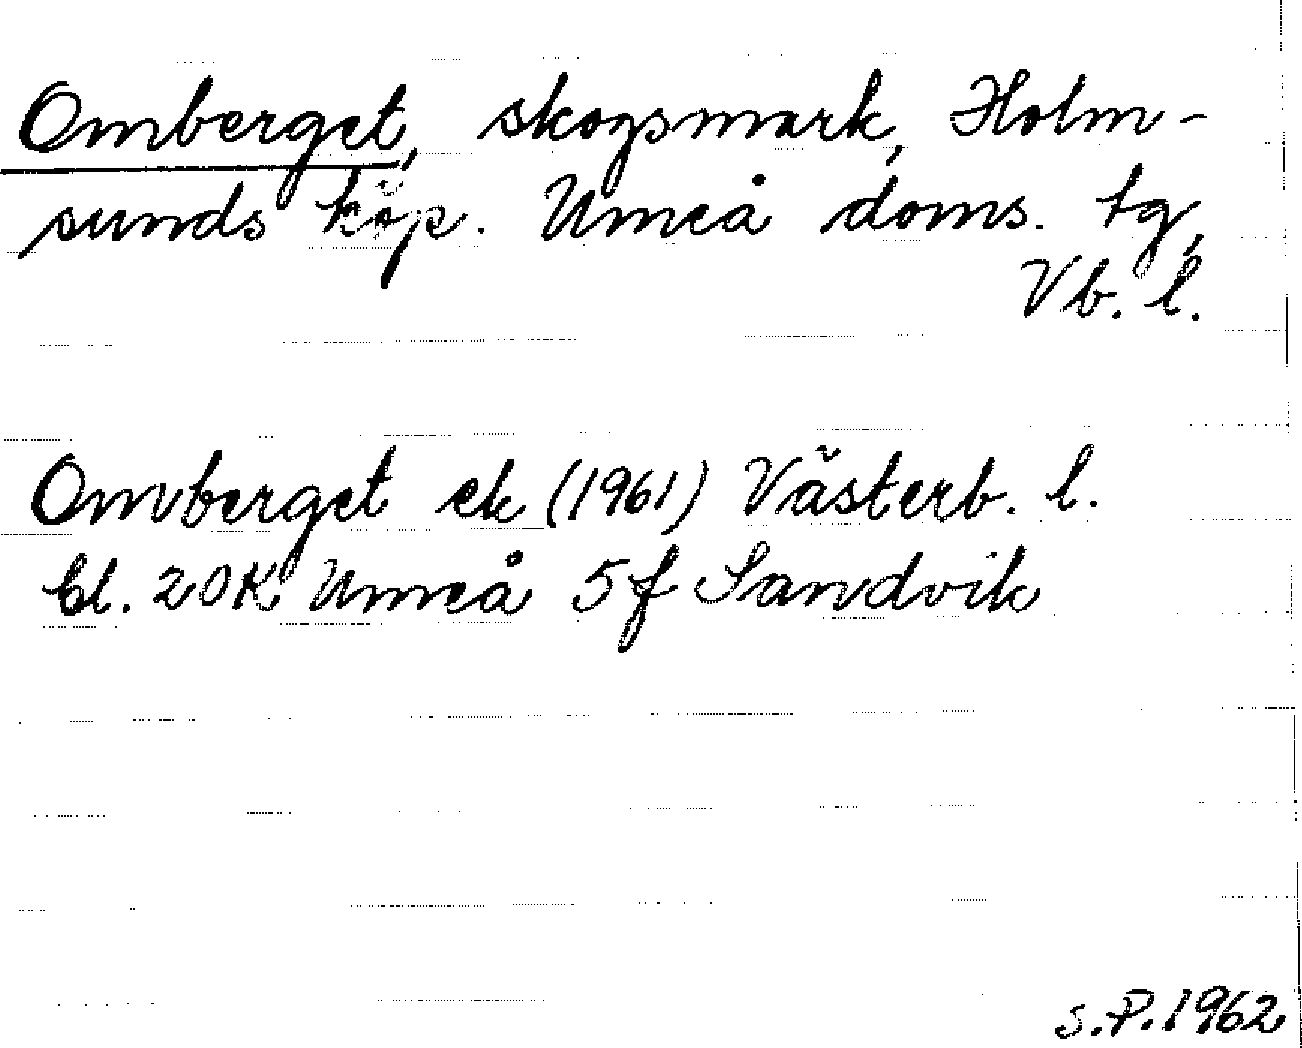 Omberget, skogsmark, Holm-
sunds köp. Umeå doms. tg,
Vb. l.
Omberget ek (1961) Västerb. l.
bl. 20K Umeå 5f Sandvik
S.P. 1962